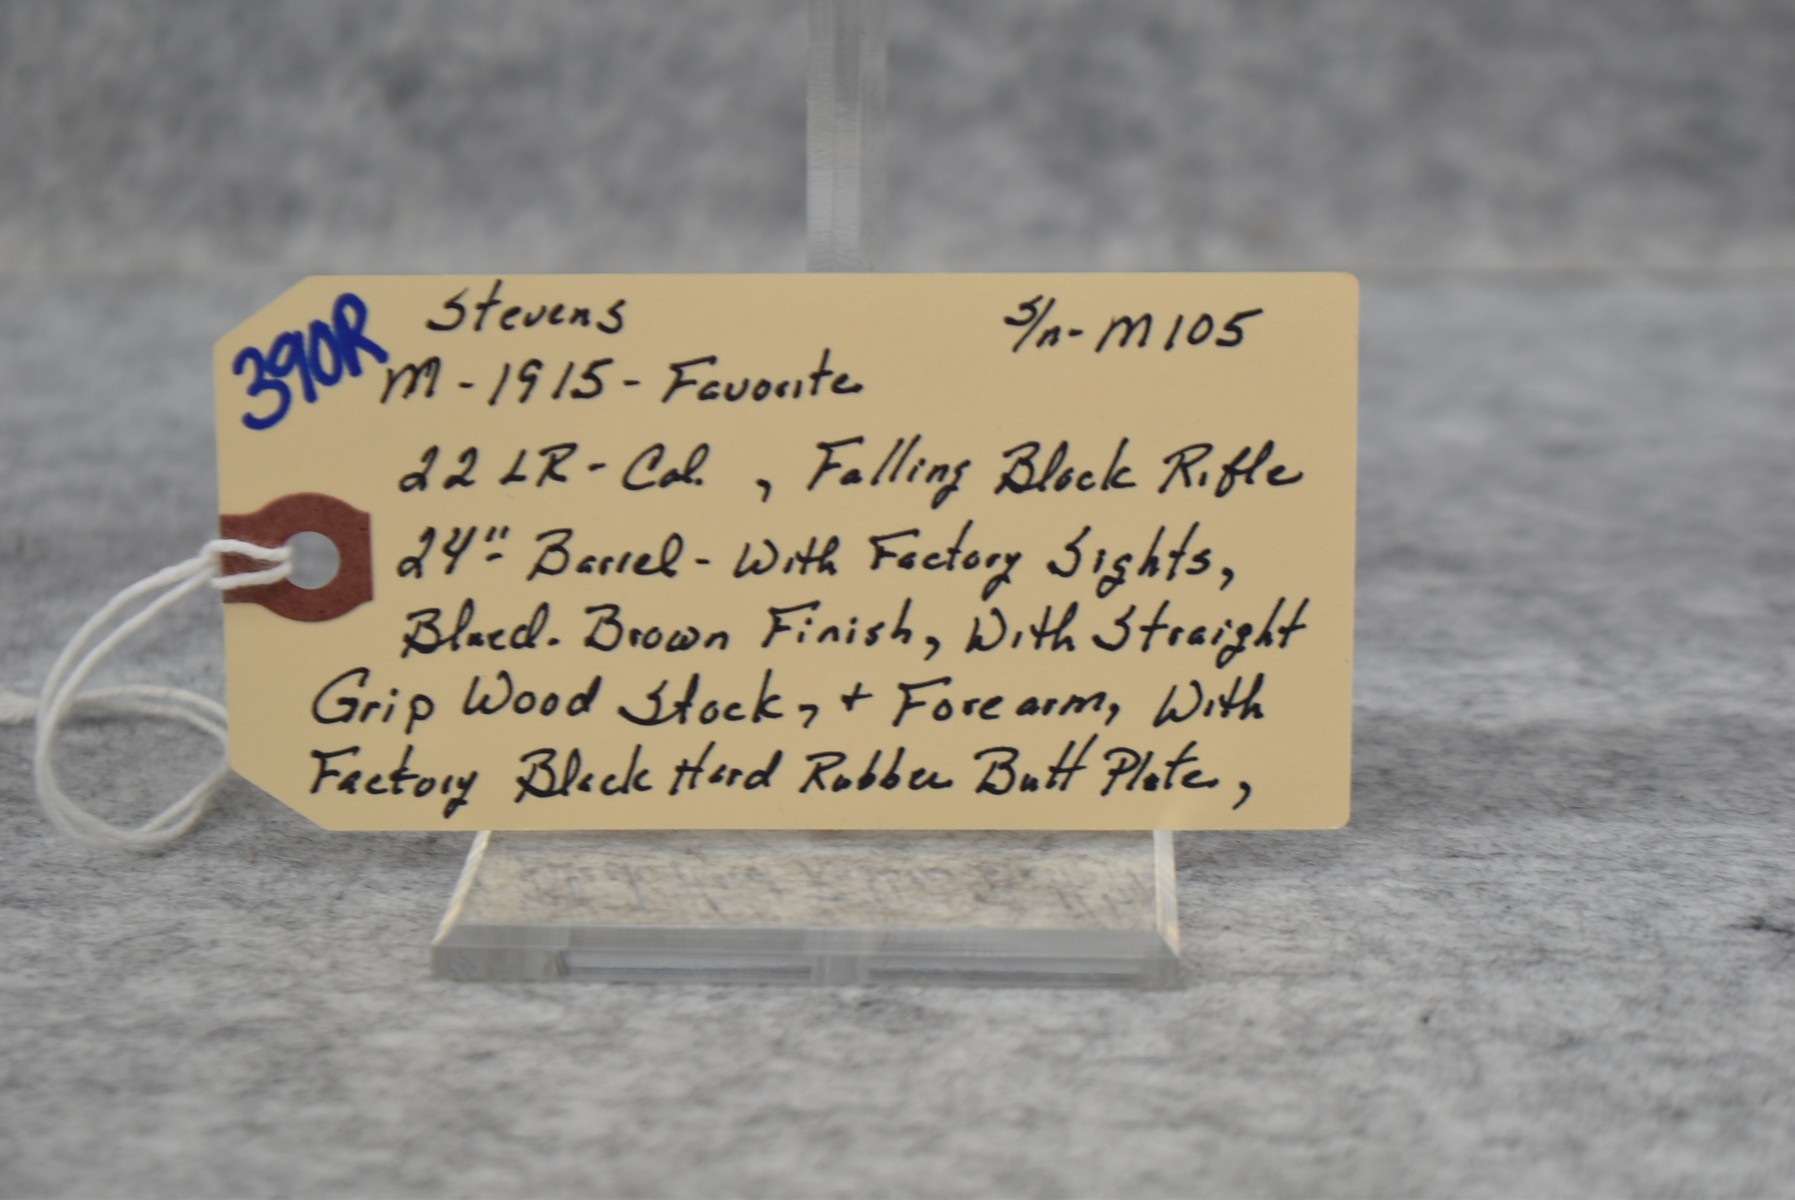 390R
Stevens S/n- M105
M-1915-Favorite
22 LR- Cal. , Falling Block Rifle
24"- Barrel - With Factory Sights,
Blued. Brown Finish, With Straight
Grip Wood Stock, + Forearm, With
Factory Black Hard Rubber Butt Plate,